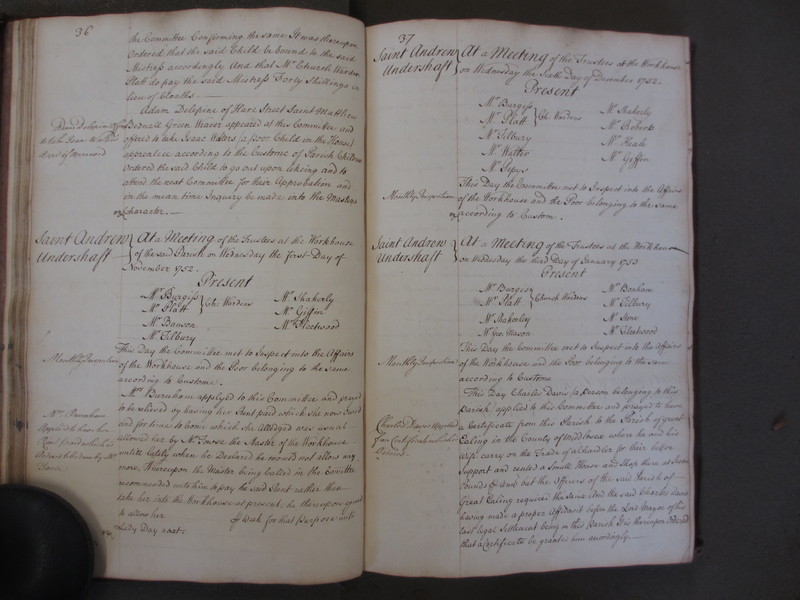 36
the Committee Confirming the same It was thereupon
Ordered that the said Child be bound to the said
Mistress accordingly And that Mr. Church Warden
Platt do pay the said Mistress Forty Shillings in
lieu of Cloaths
Adam Delepine of Hare Street Saint Matthew
Bednall Green Weaver appeared at this Committee and
offered to take Isaac Walters (a poor Child in the House)
apprentice according to the Custome of Parish Children
Ordered the said Child to go out upon likeing and to
attend the next Committee for their Approbation and
in the mean time Inquiry be made into the Masters
Character.
Saint Andrew
Undershaft
At a Meeting of the Trustees at the Workhouse
of the said Parish on Wednesday the first Day of
November 1752.
Present
Mr. Burgiss
Mr. Platt
Ch: Wardens
Mr. Tilbury
Mr. Shakerly
Mr. Giffin
Mr. Fleetwood
This Day the Committee met to Inspect into the Affairs
of the Workhouse and the Poor belonging to the same
according to Custome.
Mrs. Burnham
Mrs. Burnham applyed to this Committee and prayed
to be relieved by having her Rent paid which she now owed
and for time to come which she alledged was usual
allowed her by Mr. the Master of the Workhouse
untill lately when he Declared he wou'd not allow any
more, Whereupon the Master being called in the Comittee
recommended unto him to pay the said Rent rather than
take her into the Workhouse at present he thereupon agreed
to allow her
Week for that Purpose unto
Lady Day next.
37
Saint Andrew
Undershaft
At a Meeting of the Trustees at the Workhouse
on Wednesday the Sixth Day of December 1752.
Present
Mr. Burgiss
Mr. Platt
Ch: Wardens
Mr. Tilbury
Mr. Walter
Mr. Shakerly
Mr. Roberts
Mr. Giffin
Monthly Inspection
This Day the Committee met to Inspect into the Affairs
of the Workhouse and the Poor belonging to the same
according to Custom.
Saint Andrew
Undershaft
At a Meeting of the Trustees at the Workhouse
on Wednesday the third Day of January 1753
Present
Mr. Burgess
Mr. Platt
Church Wardens
Mr. Shakerley
Mr. Geo: Mason
Mr. Bonham
Mr. Tilbury
Mr. Stone
Mr. Fleetwood
Monthly Inspection
This Day the Committee met to Inspect into the Affairs
of the Workhouse and the Poor belonging to the same
according to Custome
Charles Davis Applyed
for a Certificate which is
Ordered
This Day Charles Davis (a Person belonging to this
Parish) applied to this Committee and prayed to have
a Certificate from this Parish to the Parish of great
Ealing in the County of Middlesex where he and his
Wife carry on the Trade of a Chandler for their better
Support and rented a Small House and Shop there at
Pounds but the Officers of the said Parish of
Great Ealing requires the same And the said Charles Davis
having made a proper Affidavit before the Lord Mayor of his
last legal Settlement being in this Parish It is thereupon Ordered
that a Certificate be granted him accordingly.